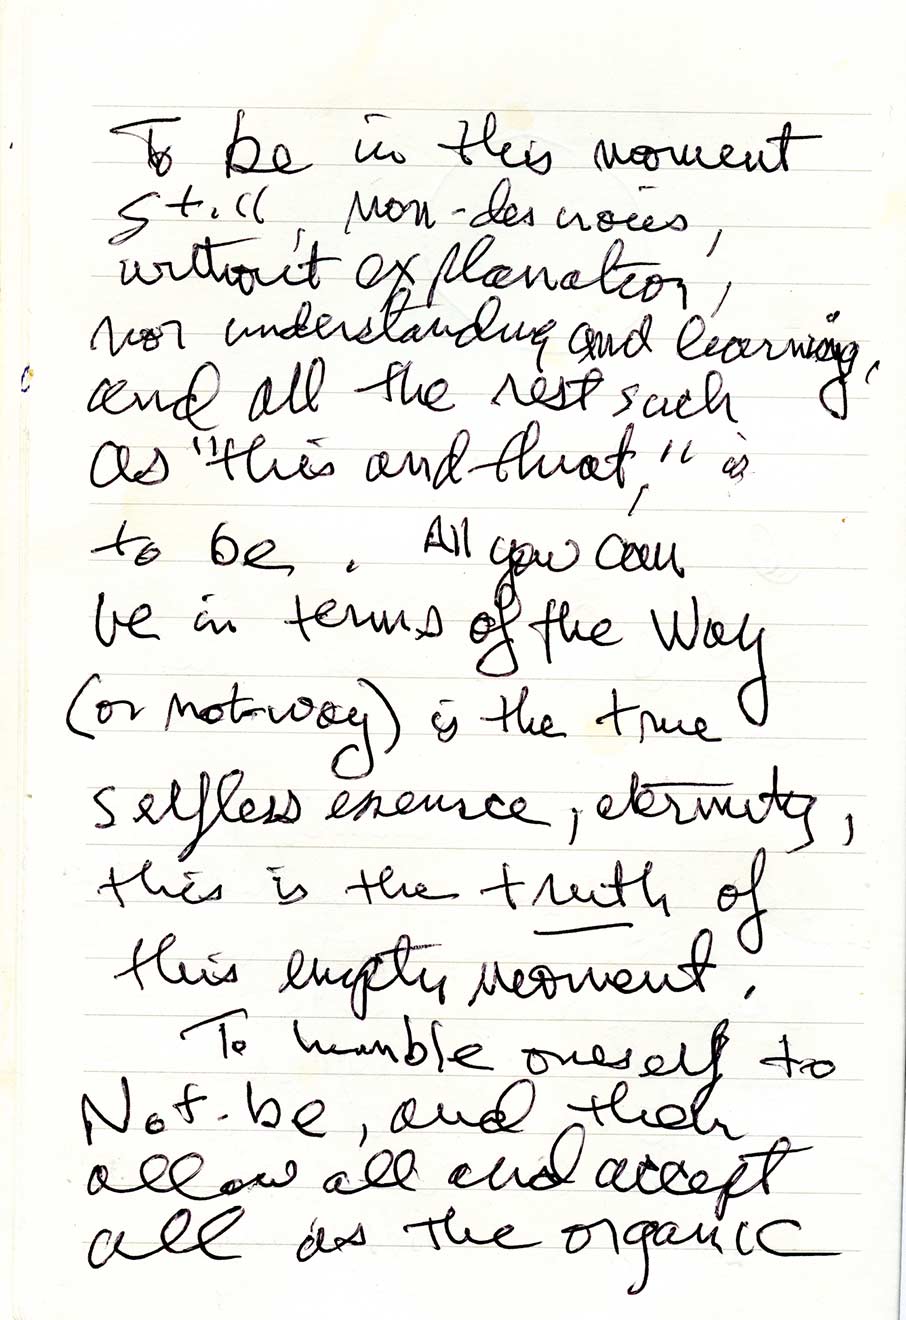 To be in this moment
still, non-desirous,
without explanation,
nor understanding and learning,
and all the rest such
as "this and that," is
to be. All you can
be in terms of the Way
(or not-way) is the true
selfless essence, eternity,
this is the truth of
this empty moment.
To humble oneself to
Not-be, and then
allow all and accept
all as the organic